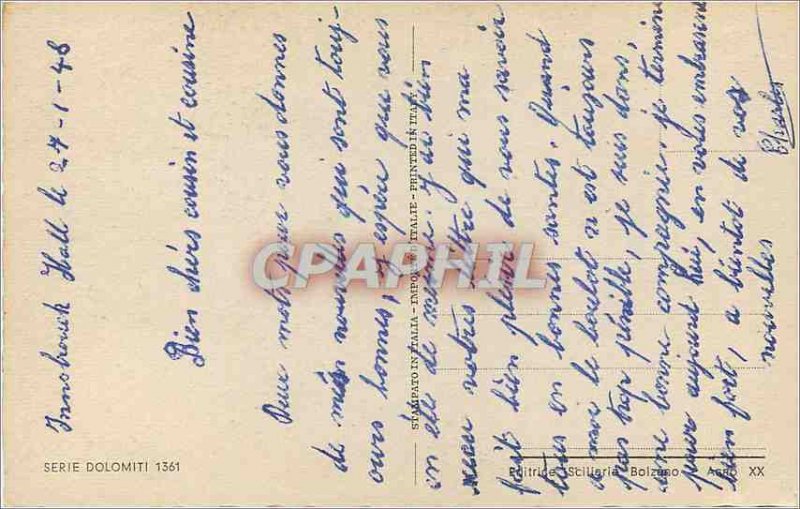 Innsbruck Hall le 27-1-48
Bien chèrs cousin et cousine
Deux mots pour vous donnes
de mes nouvelles qui sont touj-
ours bonnes, j'espère que vous
en éte de même. J'ai bien
recu votres lettre qui ma
fait bien plaisir de vous savoir
tous en bonnes santés. Quand
a moi le boulot n est toujours
pas trop pénible, je suis dans
une bonne compagnie. je termine
pour aujourd hui, en vous embrassant
bien fort, a bientot de vos
nouvelles
Charles
STAMPATO IN ITALIA - IMPORTÉ D'ITALIE - PRINTED IN ITALY
CPAPHIL
SERIE DOLOMITI 1361
Editrice Sciliaria Bolzano - Anno XX